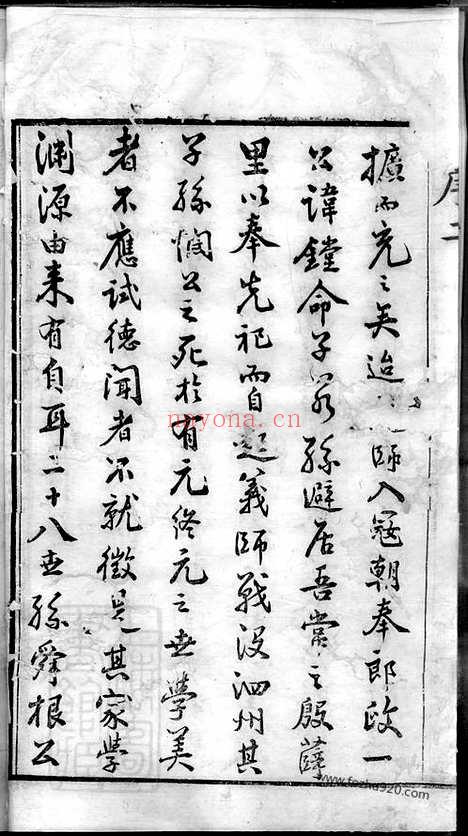 擴而充之矣迨 師入寇朝奉郎政一
公諱鏜命子若孫避居吾常之殷薛
里以奉先祀而自起義師戰没泗州其
子孫憫公之死於有元終元之世學美
者不應試德聞者不就徵是其家學
淵源由来有自耳二十八世孫舜根公
序二
nnyona.cn
www.fozhu920.com